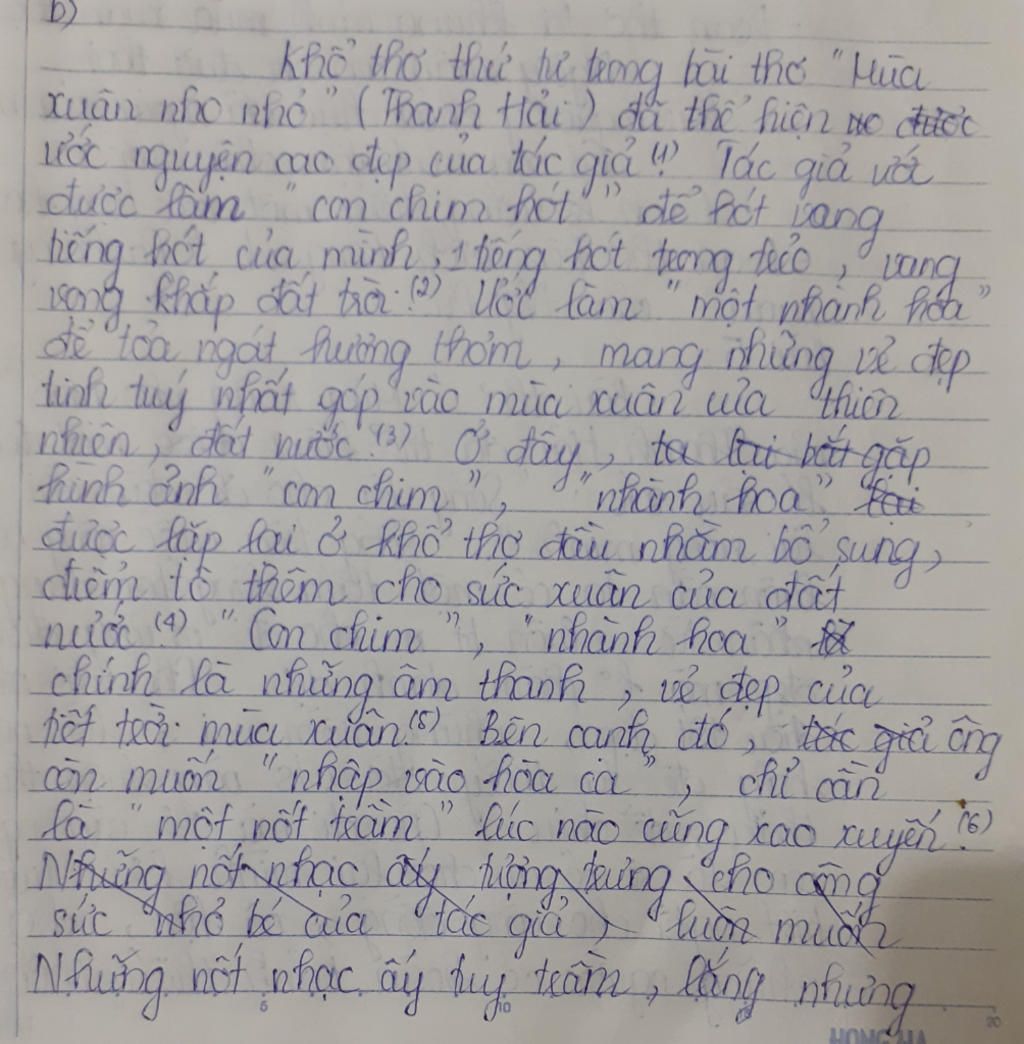 b)
Khổ thơ thứ tư trong bài thơ "Mùa
xuân nho nhỏ" (Thanh Hải) đã thể hiện được
ước nguyện cao đẹp của tác giả.(1) Tác giả ước
được làm "con chim hót" để hót vang
tiếng hót của mình, 1 tiếng hót trong trẻo, vang
vọng khắp đất trời.(2) Ước làm "một nhành hoa"
để tỏa ngát hương thơm, mang những vẻ đẹp
tinh tuý nhất góp vào mùa xuân của thiên
nhiên, đất nước.(3) Ở đây, ta lại bắt gặp
hình ảnh "con chim", "nhành hoa" lại
được lặp lại ở khổ thơ đầu nhằm bổ sung,
điểm tô thêm cho sức xuân của đất
nước.(4) "Con chim", "nhành hoa"
chính là những âm thanh, vẻ đẹp của
tiết trời mùa xuân.(5) Bên cạnh đó, tác giả ông
còn muốn "nhập vào hòa ca", chỉ cần
là "một nốt trầm" lúc nào cũng xao xuyến.(6)
Những nốt nhạc ấy tượng trưng cho công
sức nhỏ bé của tác giả, luôn muốn
Những nốt nhạc ấy tuy trầm, lắng nhưng
5 10 20
HONG HA